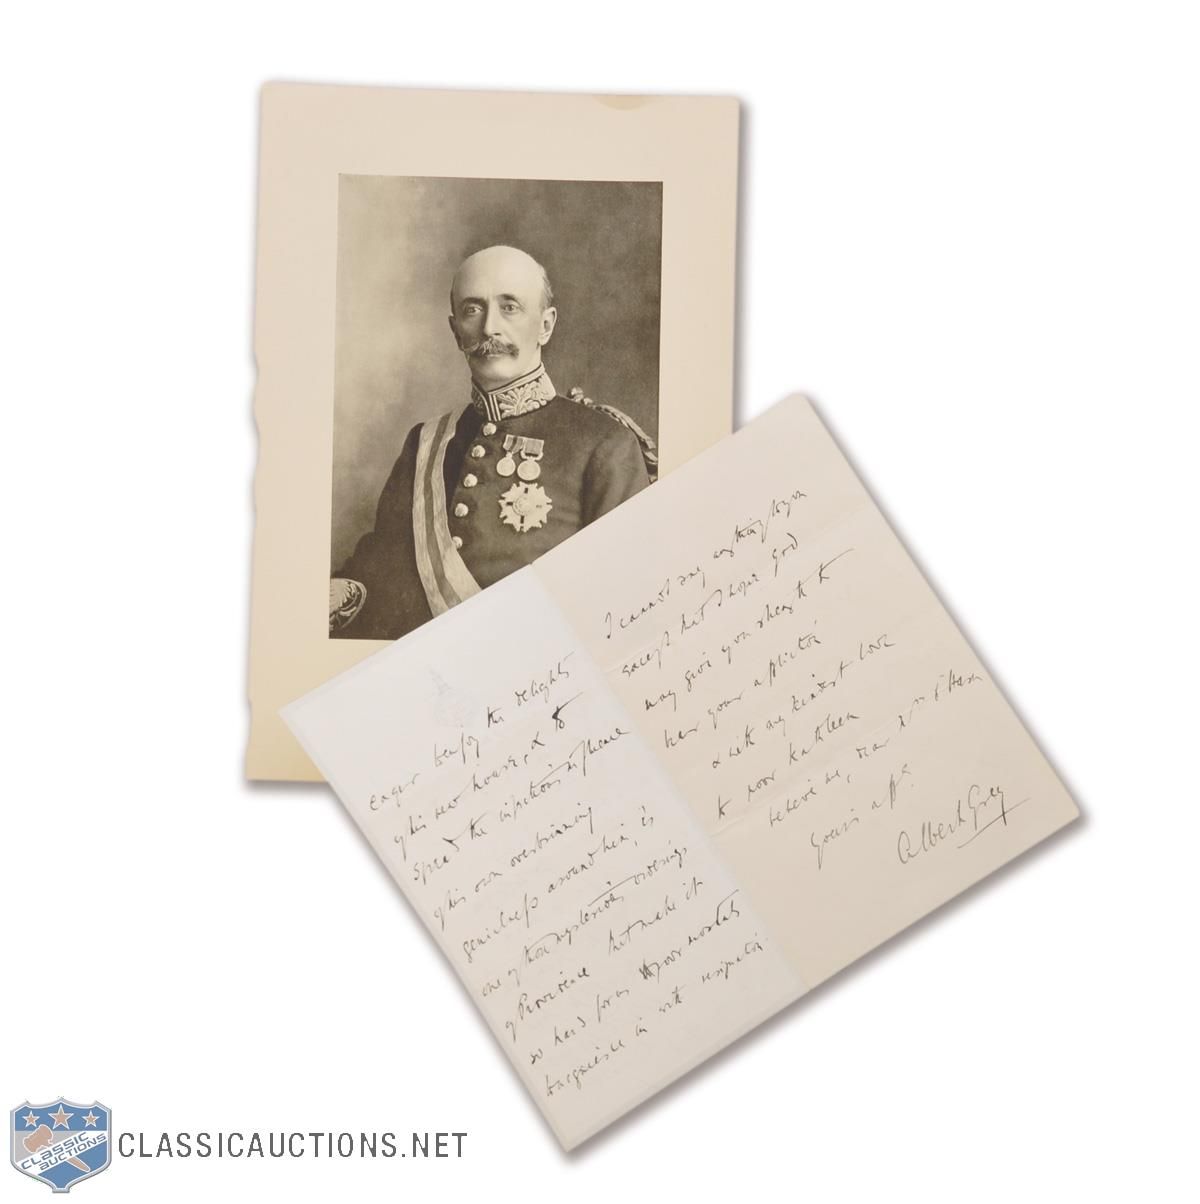 eager to enjoy the delights
of his new house, & to
spread the infectious influence
of his own overbrimming
geniality around him, is
one of those mysterious orderings
of Providence that make it
so hard for us poor mortals
to acquiesce in with resignation.
I cannot say anything to you
except that I hope God
may give you strength to
bear your affliction
& with my kindest love
to poor Kathleen
believe me, dear Mrs
Yours aff.
Albert Grey
CLASSIC
AUCTIONS
CLASSICAUCTIONS.NET